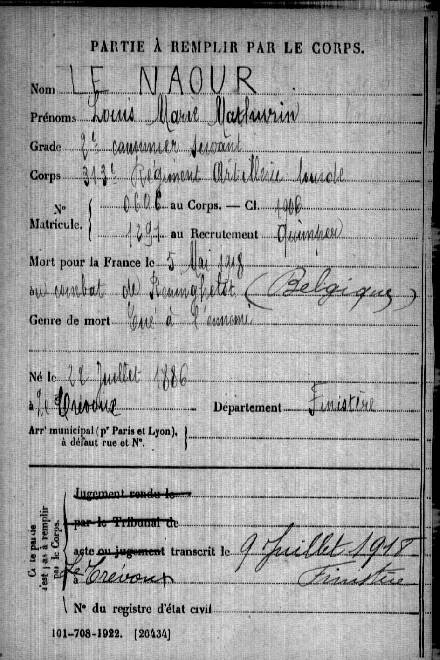 PARTIE À REMPLIR PAR LE CORPS.
Nom LE NAOUR
Prénoms Louis Marie Mathurin
Grade 2e canonnier servant
Corps 313e Régiment Artillerie lourde
N° Matricule. 0606 au Corps. — Cl. 1906
1291 au Recrutement Quimper
Mort pour la France le 5 Mai 1918
au combat de Reninghelst (Belgique)
Genre de mort Tué à l'ennemi
Né le 22 Juillet 1886
à Le Trévoux Département Finistère
Arrt municipal (pr Paris et Lyon),
à défaut rue et N°.
Cette partie
n'est pas à remplir
par le Corps.
Jugement rendu le
par le Tribunal de
acte ou jugement transcrit le 9 Juillet 1918
à Le Trévoux Finistère
N° du registre d'état civil
101-708-1922. [20434]